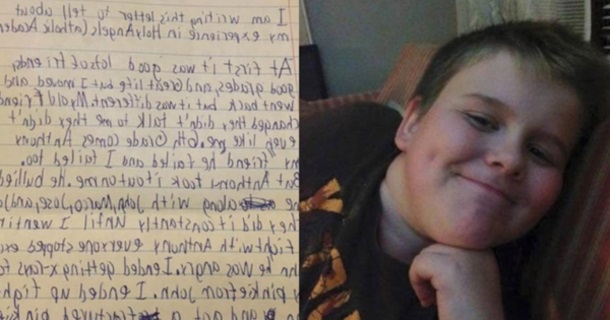 I am writing this letter to tell about
my experience in Holy Angels Catholic
At first it was good lots of friends,
good grades, and great life but I moved and
went back but it was different. My old friend
changed they didn't talk to me they didn't
even like me. 6th Grade comes Anthony
my friend he failed and I failed too.
But Anthony took it out on me. He bullied
me along with John, Marco, Jose, and
they did it constantly Until I went in
fight with Anthony everyone stopped
he was angry. I ended getting x-rays
pinkie from John. I ended up
and got a fractured